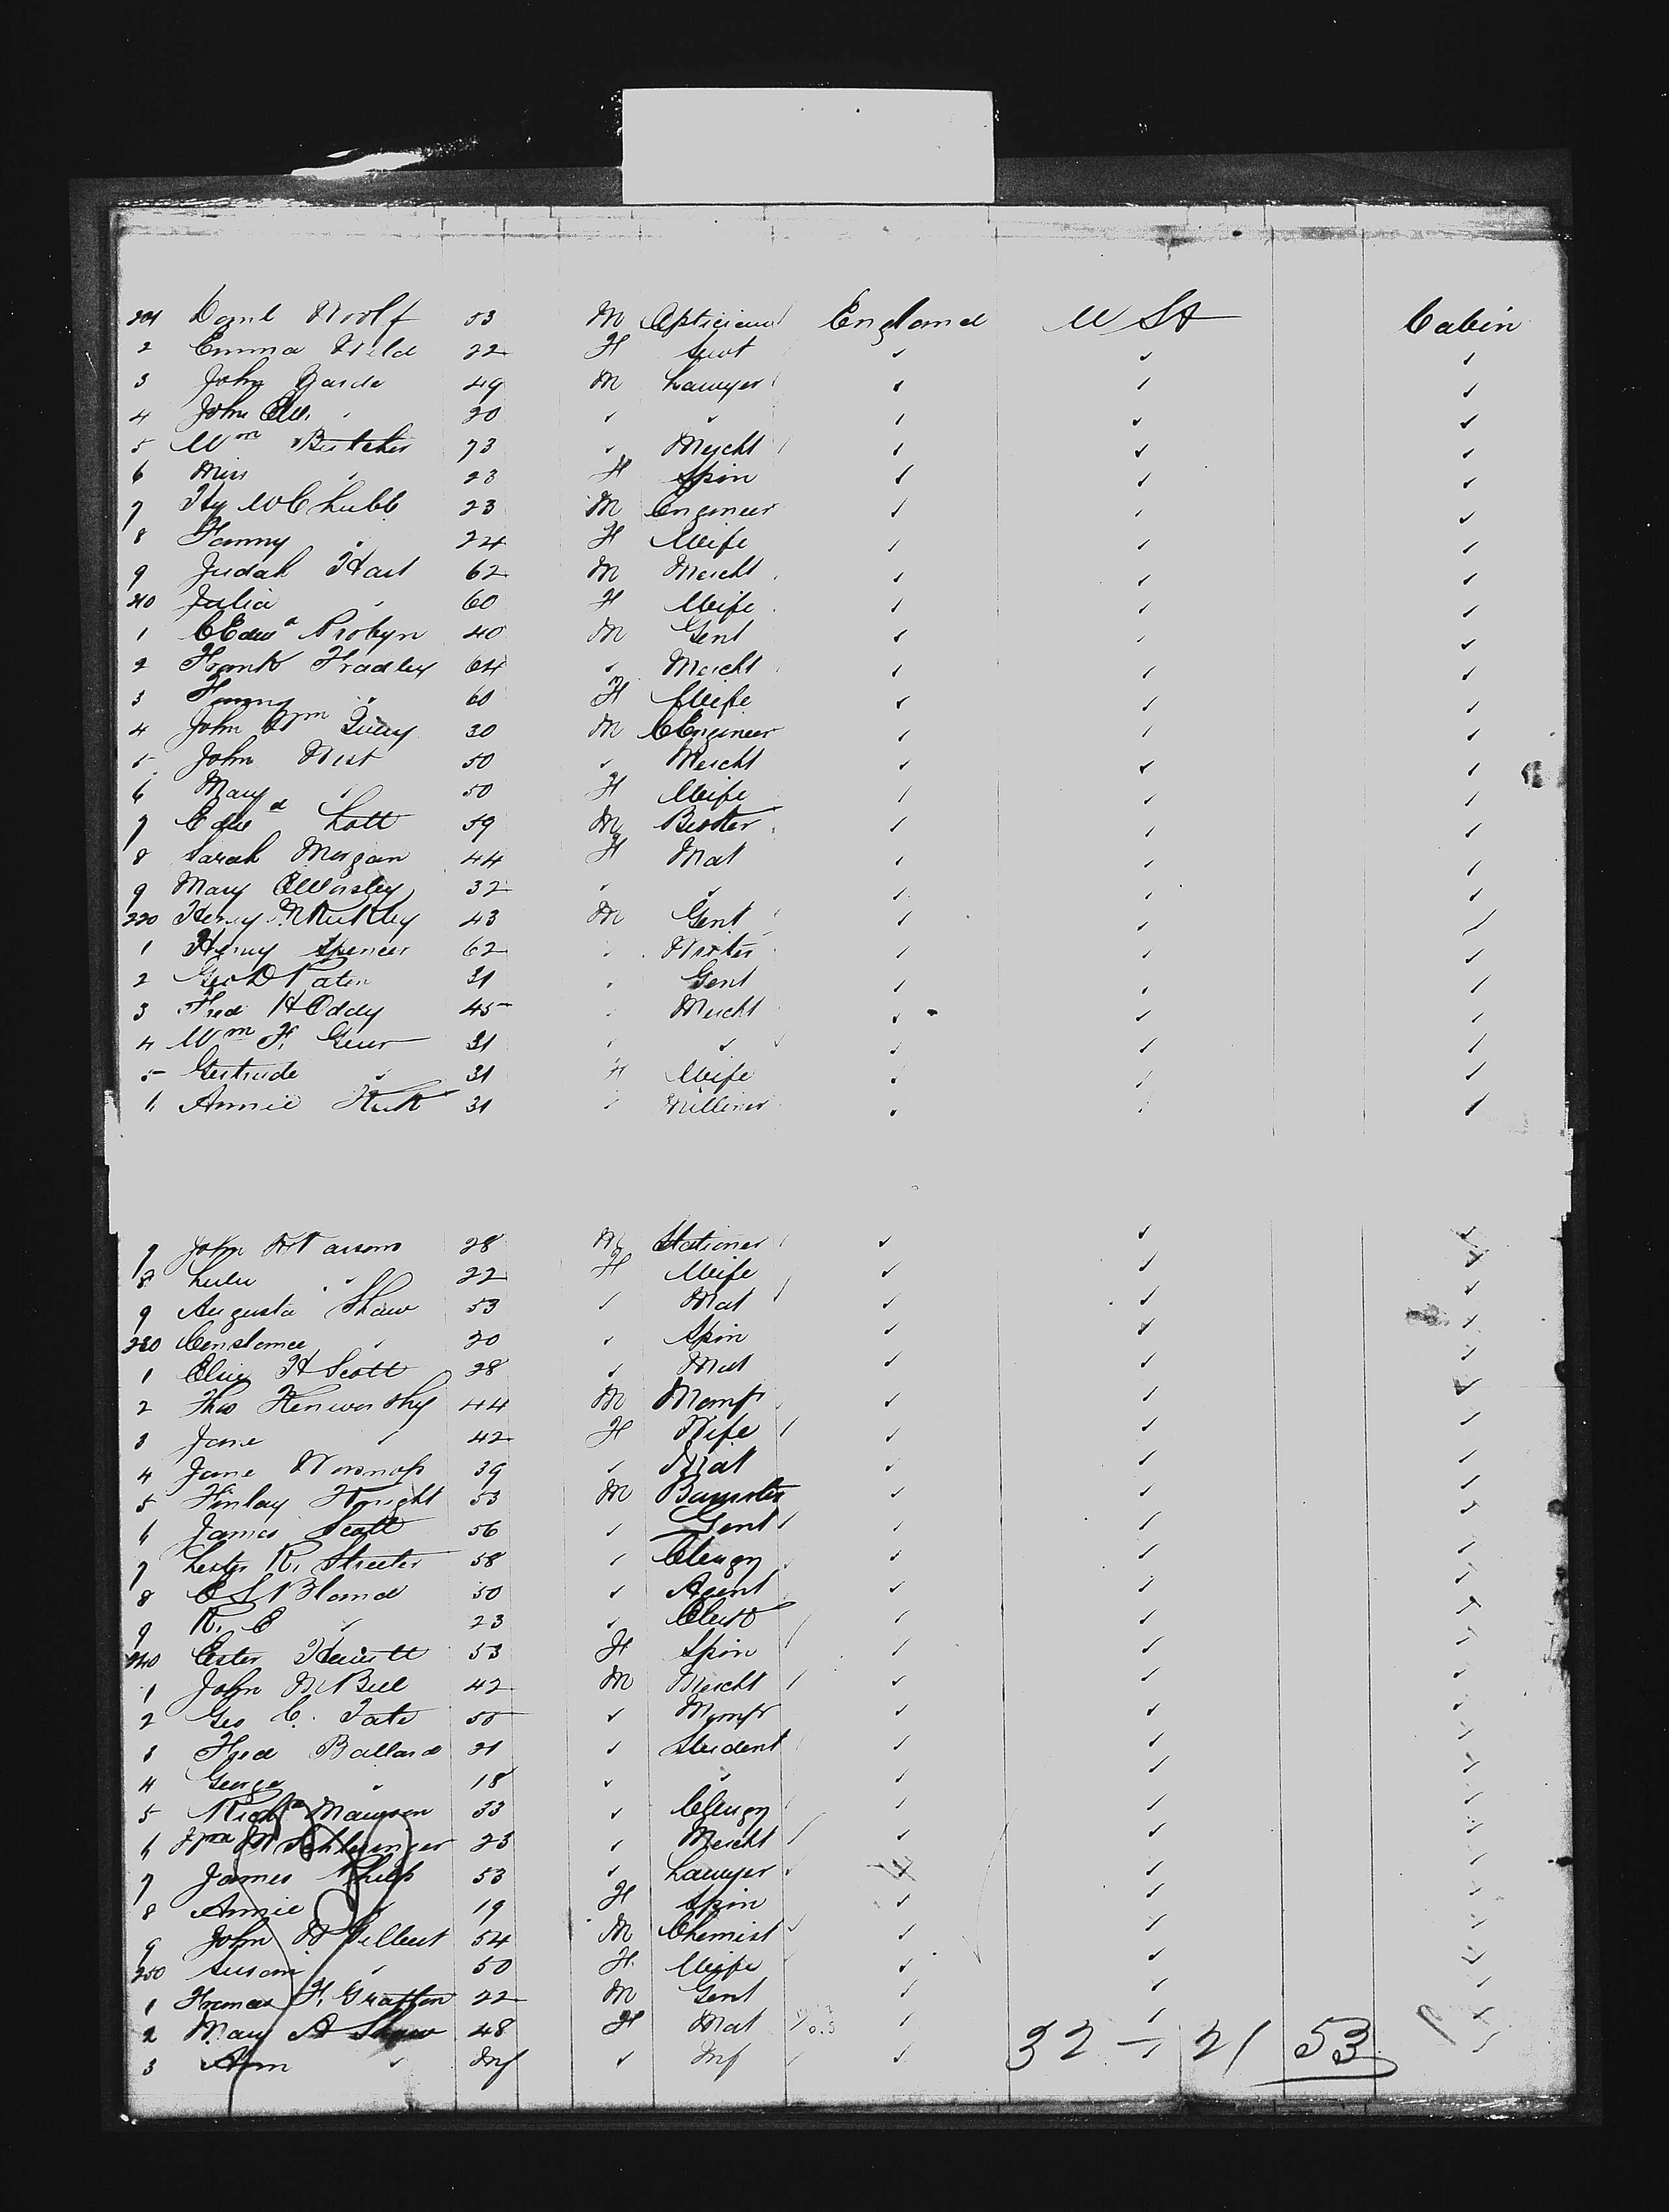 201 Danl Woolf 53 M Optician England U St Cabin
2 Emma Wild 22 F Sevt ✓ ✓ ✓
3 John Garde 49 M Lawyer ✓ ✓ ✓
4 John Ed. " 20 ✓ ✓ ✓ ✓ ✓
5 Wm Butcher 73 ✓ Mercht ✓ ✓ ✓
6 Miss " 23 F Spin ✓ ✓ ✓
7 Hy W Chubb 23 M Engineer ✓ ✓ ✓
8 Fanny " 24 F Wife ✓ ✓ ✓
9 Judah Hart 62 M Mercht ✓ ✓ ✓
210 Julia " 60 F Wife ✓ ✓ ✓
1 C Edwd Probyn 40 M Gent ✓ ✓ ✓
2 Frank Fradley 64 ✓ Mercht ✓ ✓ ✓
3 Fanny " 60 F Wife ✓ ✓ ✓
4 John Wm 30 M C Engineer ✓ ✓ ✓
5 John West 50 ✓ Mercht ✓ ✓ ✓
6 Mary " 50 F Wife ✓ ✓ ✓
7 Edwd Lott 59 M ✓ ✓ ✓
8 Sarah Morgan 44 F Mat ✓ ✓ ✓
9 Mary E Worsley 32 ✓ ✓ ✓ ✓ ✓
220 Henry 43 M Gent ✓ ✓ ✓
1 Henry Spencer 62 ✓ Writer ✓ ✓ ✓
2 Geo D Paten 31 ✓ Gent ✓ ✓ ✓
3 Fred H Oddy 45 ✓ Mercht ✓ ✓ ✓
4 Wm F. Geer 31 ✓ ✓ ✓ ✓ ✓
5 Gertrude " 31 F Wife ✓ ✓ ✓
6 Annie 31 ✓ Milliner ✓ ✓ ✓
7 John W Parsons 28 M Stationer ✓ ✓ ✓
8 Lulu " 22 F Wife ✓ ✓ ✓
9 Augusta Shaw 53 ✓ Mat ✓ ✓ ✓
230 Constance " 20 ✓ Spin ✓ ✓ ✓
1 Eliz H Scott 28 ✓ Mat ✓ ✓ ✓
2 Thos Kenworthy 44 M Manfr ✓ ✓ ✓
3 Jane " 42 F Wife ✓ ✓ ✓
4 Jane Worsnop 39 ✓ Mat ✓ ✓ ✓
5 Finlay Knight 53 M Barrister ✓ ✓ ✓
6 James Scott 56 ✓ Gent ✓ ✓ ✓
7 Lester R. Streeter 58 ✓ Clergy ✓ ✓ ✓
8 E S Bland 50 ✓ Agent ✓ ✓ ✓
9 R. E " 23 ✓ Clerk ✓ ✓ ✓
240 Ester Hewitt 53 F Spin ✓ ✓ ✓
1 John M Bell 42 M Mercht ✓ ✓ ✓
2 Geo C. Tate 50 ✓ Manfr ✓ ✓ ✓
3 Fred Ballard 21 ✓ Student ✓ ✓ ✓
4 George " 18 ✓ ✓ ✓ ✓ ✓
5 Richd Mawson 33 ✓ Clergy ✓ ✓ ✓
6 Wm M Schlesinger 23 ✓ Mercht ✓ ✓ ✓
7 James Philp 53 ✓ Lawyer ✓ ✓ ✓
8 Annie " 19 F Spin ✓ ✓ ✓
9 John H Gilbert 54 M Chemist ✓ ✓ ✓
250 Susan " 50 F Wife ✓ ✓ ✓
1 Thomas F. Grafton 22 M Gent ✓ ✓ ✓
2 Mary A Shaw 48 F Mat ✓ ✓ ✓
3 Ann " Inf ✓ Inf ✓ 32 - 21 53 ✓